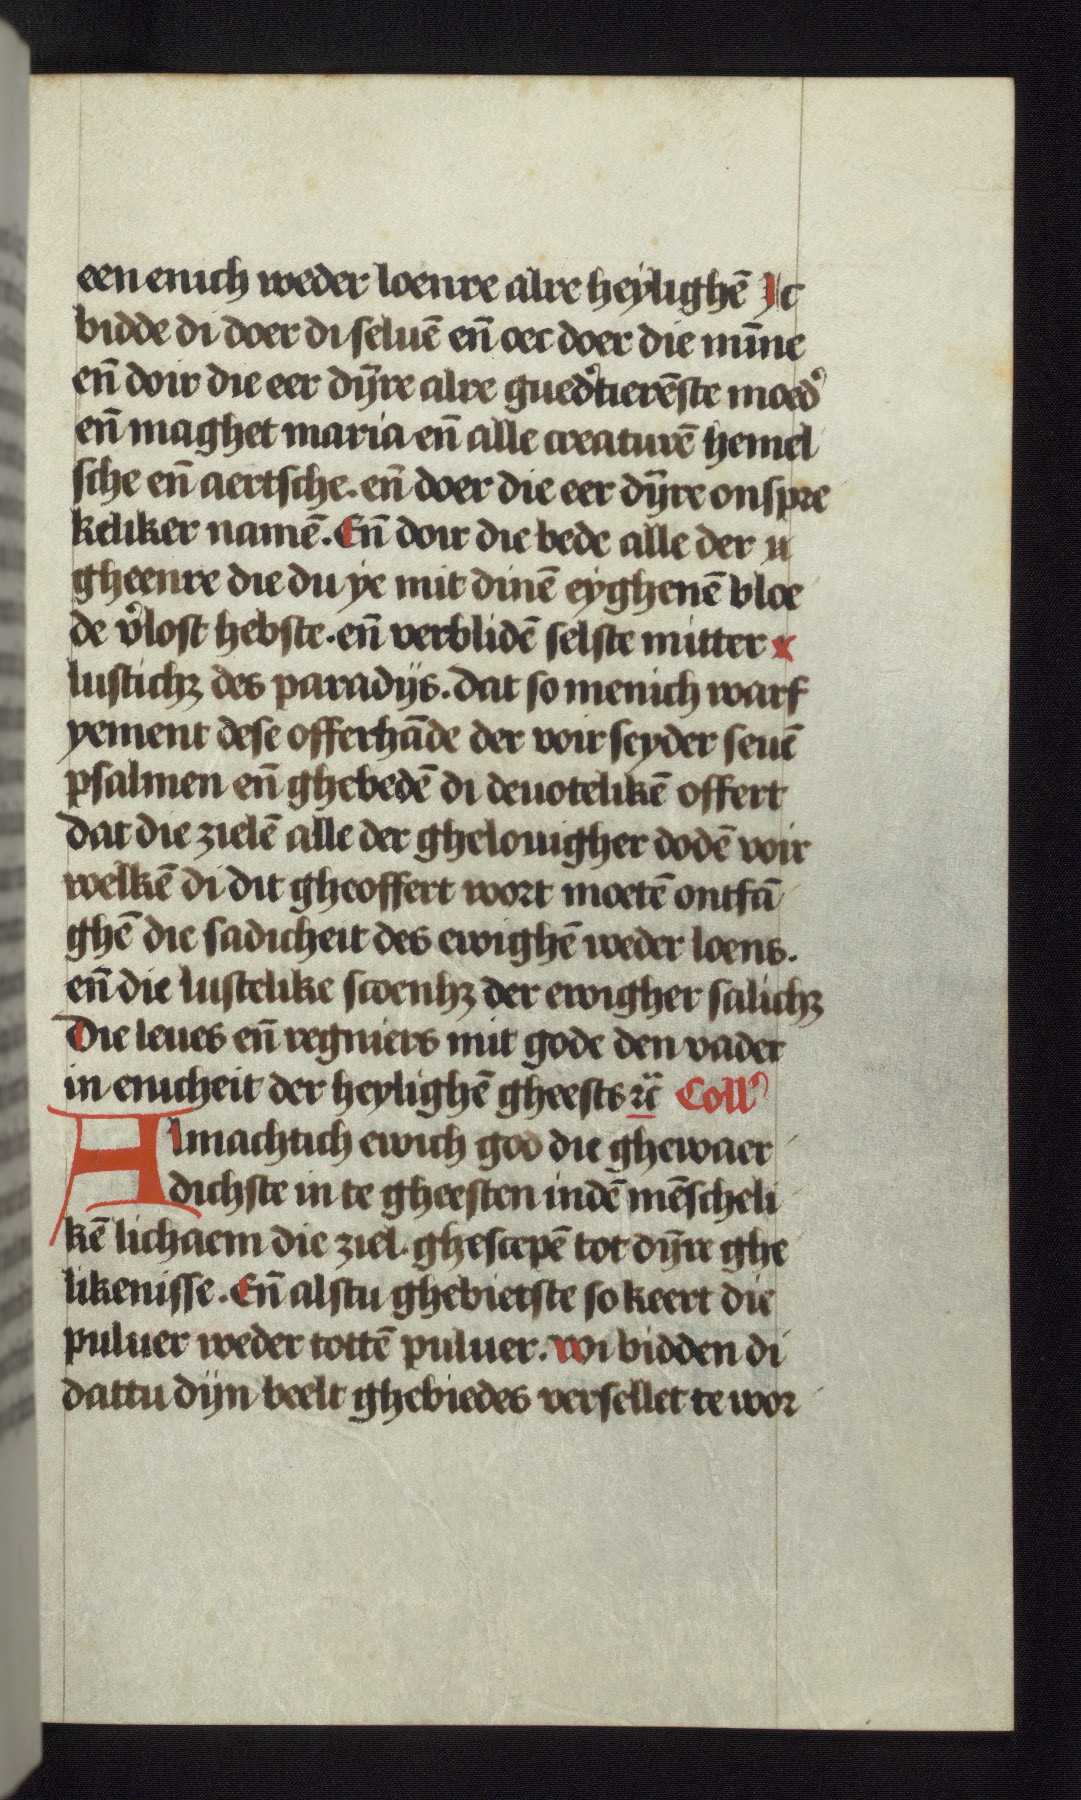 een enich weder loenre alre heylighē Ic
bidde di doer di seluē en̄ oec doer die mīne
en̄ doir die eer dȳre alre gued͛tierēste moed͛
en̄ maghet maria en̄ alle creaturē hemel
sche en̄ aertsche. en̄ doer die eer dȳre onspre
keliker namē. En̄ doir die bede alle der u
gheenre die du ye mit dinē eyghenē bloe
de v͛lost hebste. en̄ verblidē selste mitter x
lustichꝫ des paradijs. dat so menich warf
yement dese offerhāde der voir seyder seuē
psalmen en̄ ghebedē di deuotelikē offert
dat die zielē alle der ghelouigher dodē voir
welkē di dit gheoffert wort moetē ontfā
ghē die sadicheit des ewighē weder loens.
en̄ die lustelike scoenhꝫ der ewigher salichꝫ
Die leues en̄ regniers mit gode den vader
in enicheit der heylighē gheests ⁊c̄ Coll͛
Almachtich ewich god die ghewaer
dichste in te gheesten indē mēscheli
kē lichaem die ziel ghescepē tot dȳre ghe
likenisse. En̄ alstu ghebietste so keert die
puluer weder tottē puluer. Wi bidden di
dattu dijn beelt ghebiedes versellet te wor